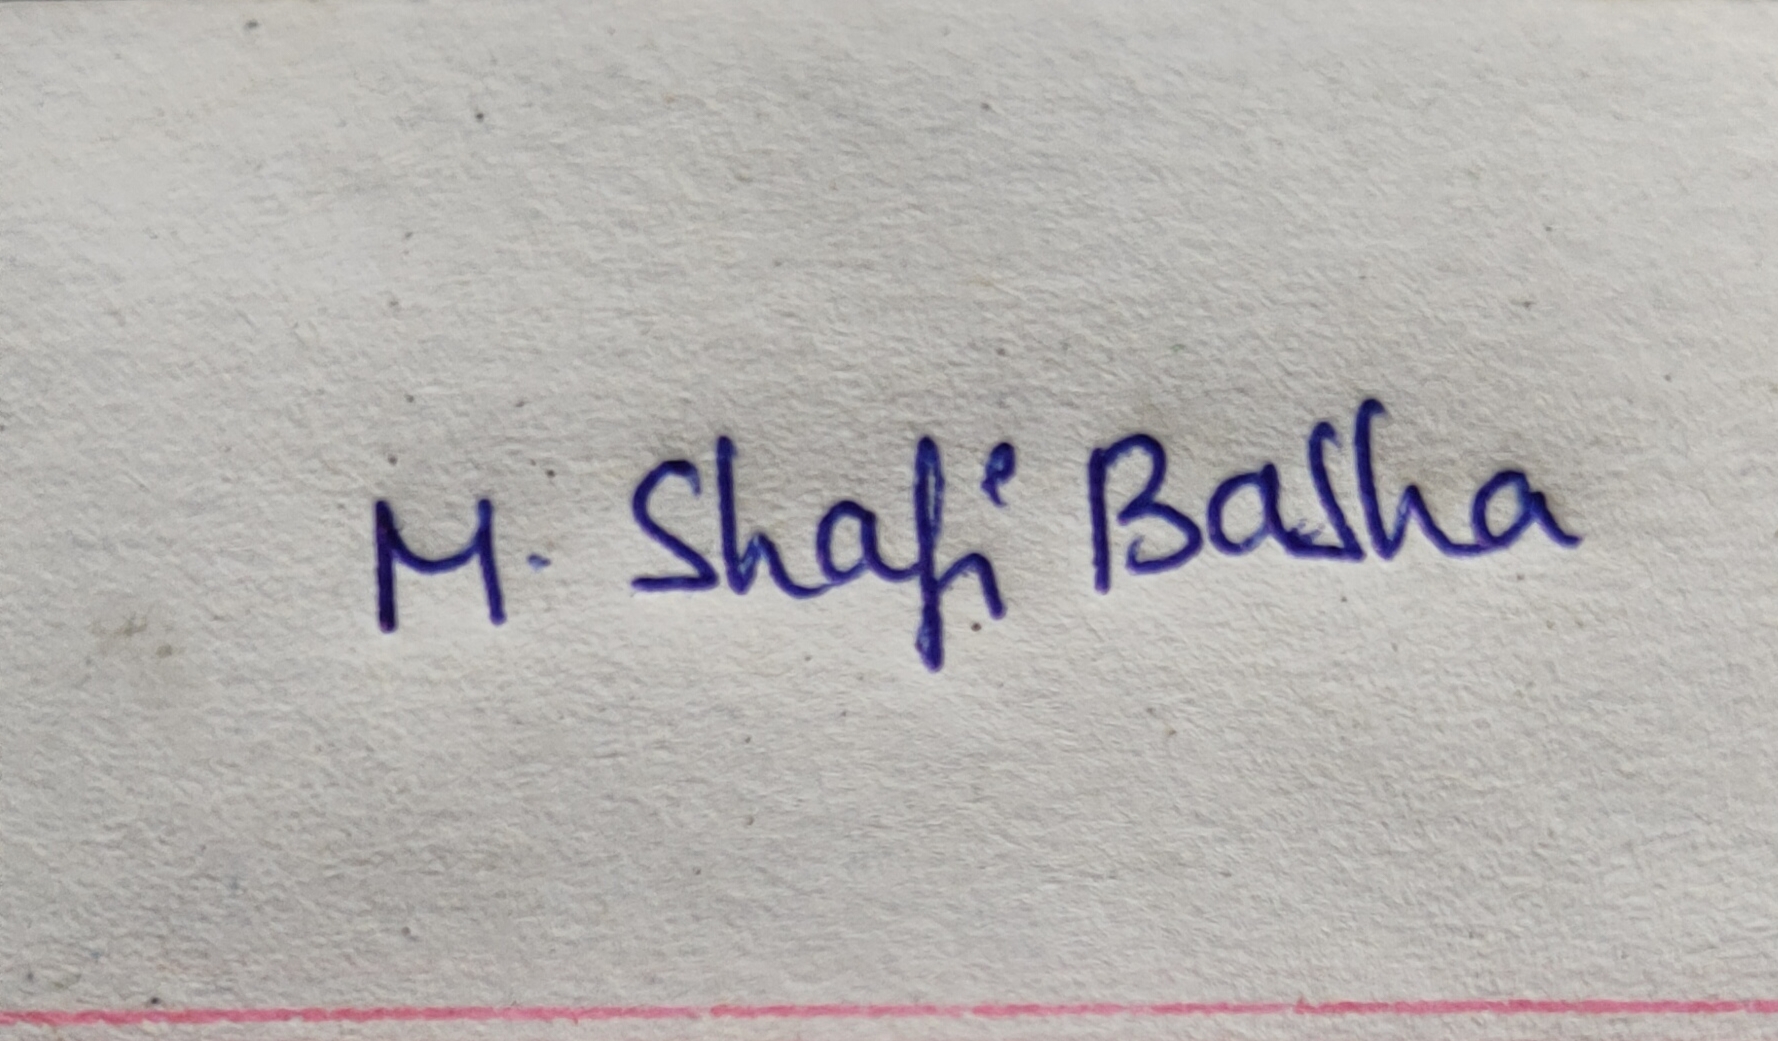 M. Shafi Basha